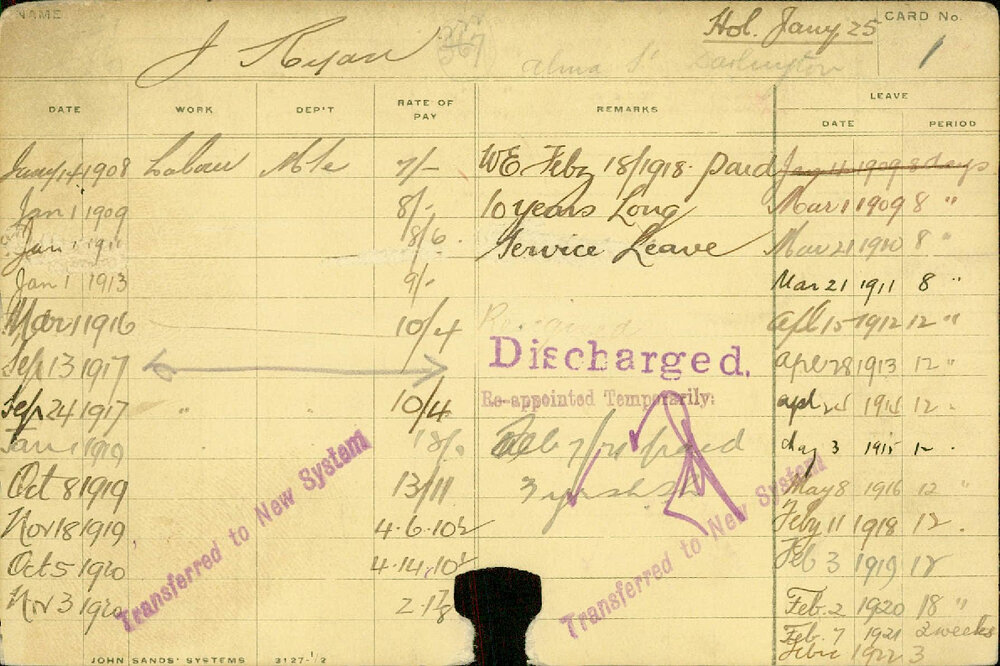 NAME
J Ryan
367
Hol. Jany 25
CARD No.
1
Alma St Darlington
DATE WORK DEP'T RATE OF PAY REMARKS LEAVE
DATE PERIOD
Jany 14 1908 Labour Mte 7/- WE Feby 18/1918. paid
Jan 1 1909 8/- 10 years Long Mar 1 1909 8 "
Jan 1 8/6 Service Leave Mar 21 1910 8 "
Jan 1 1913 9/- Mar 21 1911 8 "
Mar 1 1916 10/4 Apl 15 1912 12 "
Sep 13 1917 Discharged. Apr 28 1913 12 "
Sep 24 1917 " " 10/4 Re-appointed Temporarily. Apl 12
Jan 1 1919 May 3 1915 12
Oct 8 1919 13/11 May 8 1916 12 "
Nov 18 1919 4.6.10½ Feby 11 1918 12.
Oct 5 1920 4.14.10½ Feb 3 1919 12
Nov 3 1920 Feb. 2 1920 18 "
Feb. 7 1921 2 weeks
1922 3
Transferred to New System
Transferred to New System
JOHN SANDS' SYSTEMS 3127-1/2